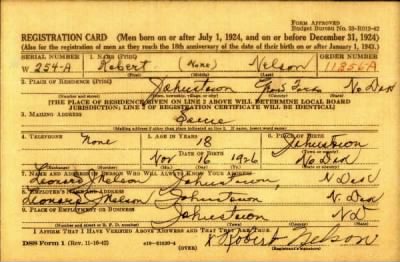 FORM APPROVED
Budget Bureau No. 33-R012-42
REGISTRATION CARD—(Men born on or after July 1, 1924, and on or before December 31, 1924)
(Also for the registration of men as they reach the 18th anniversary of the date of their birth on or after January 1, 1943.)
SERIAL NUMBER 1. NAME (Print) ORDER NUMBER
W 254-A Robert (None) Nelson 11256A
(First) (Middle) (Last)
2. PLACE OF RESIDENCE (Print)
Johnstown No Dak
(Number and street) (Town, township, village, or city) (County) (State)
[THE PLACE OF RESIDENCE GIVEN ON LINE 2 ABOVE WILL DETERMINE LOCAL BOARD
JURISDICTION; LINE 2 OF REGISTRATION CERTIFICATE WILL BE IDENTICAL]
3. MAILING ADDRESS
Same
[Mailing address if other than place indicated on line 2. If same, insert word same]
4. TELEPHONE 5. AGE IN YEARS 6. PLACE OF BIRTH
None 18 Johnstown
DATE OF BIRTH
Nov 16 1926 No Dak
(Exchange) (Number) (Mo.) (Day) (Yr.) (State or country)
7. NAME AND ADDRESS OF PERSON WHO WILL ALWAYS KNOW YOUR ADDRESS
Leonard Nelson Johnstown, N Dak
8. EMPLOYER'S NAME AND ADDRESS
Leonard Nelson Johnstown N. Dak
9. PLACE OF EMPLOYMENT OR BUSINESS
Johnstown ND
(Number and street or R. F. D. number) (Town) (County) (State)
I AFFIRM THAT I HAVE VERIFIED ABOVE ANSWERS AND THAT THEY ARE TRUE.
DSS Form 1 (Rev. 11-16-42) (OVER) x Robert Nelson